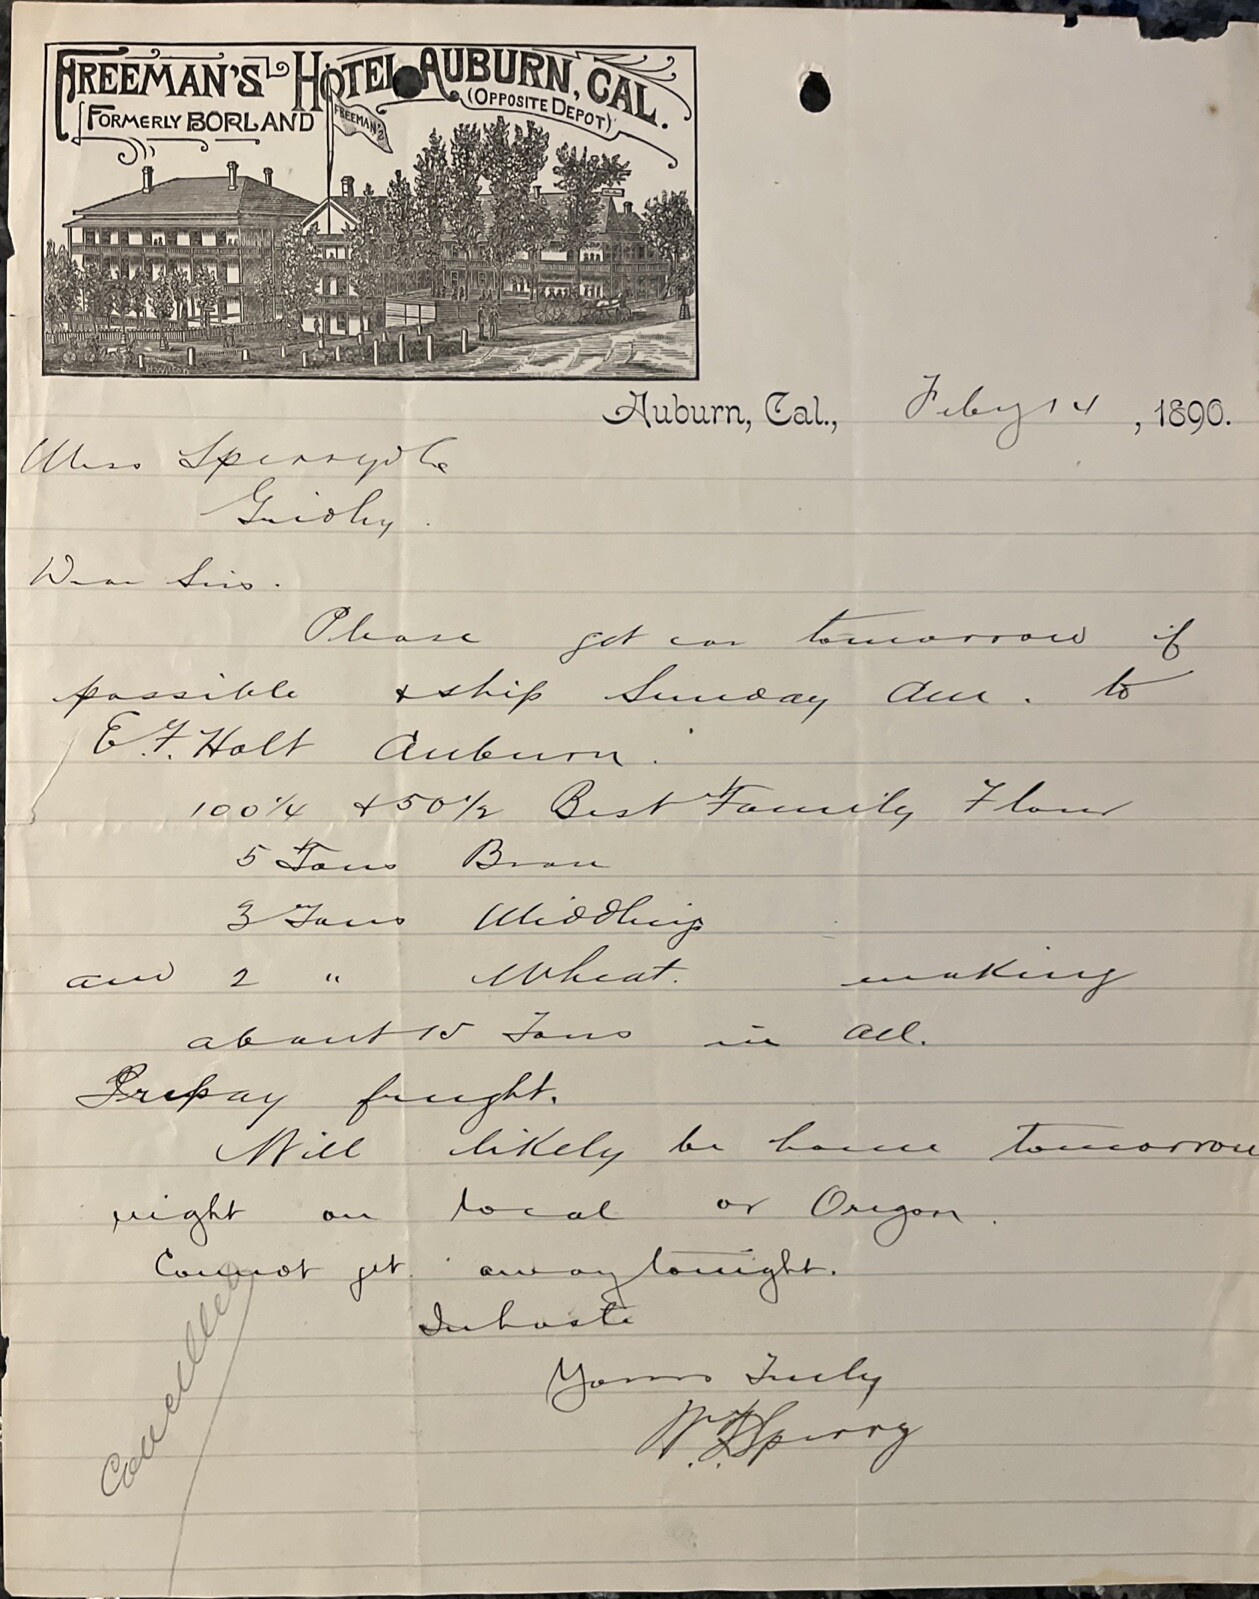 FREEMAN'S HOTEL AUBURN, CAL.
(OPPOSITE DEPOT)
FORMERLY BORLAND
FREEMAN'S
Auburn, Cal., Feby 14, 1890.
Mess Sperry & Co
Gridley.
Dear Sirs.
Please get car tomorrow if
possible & ship Sunday am. to
E.F. Holt Auburn.
100 1/4 & 50 1/2 Best Family Flour
5 Tons Bran
3 Tons Middlings
and 2 " Wheat. making
about 15 Tons in all.
Prepay freight.
Will likely be home tomorrow
night on local or Oregon.
Cannot get away tonight.
In haste
Yours Truly
Sperry
Cancelled